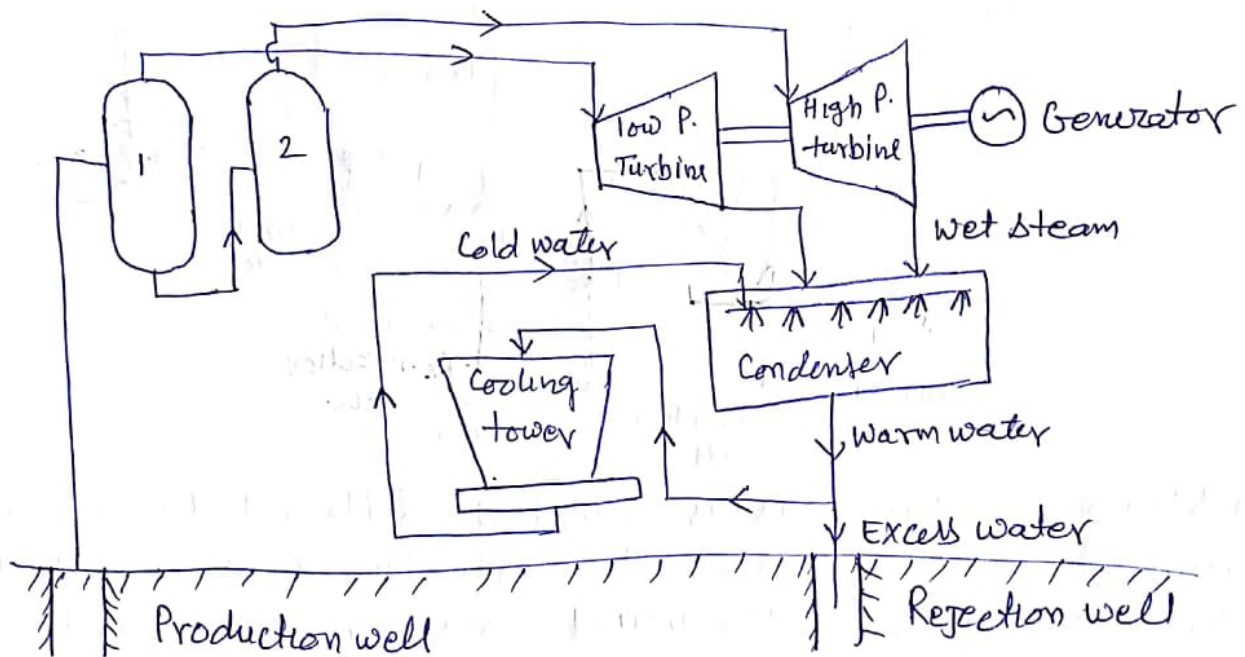 1
2
low P.
Turbine
High P.
turbine
Generator
Wet steam
Cold water
Condenser
Cooling
tower
Warm water
Excess water
Production well
Rejection well